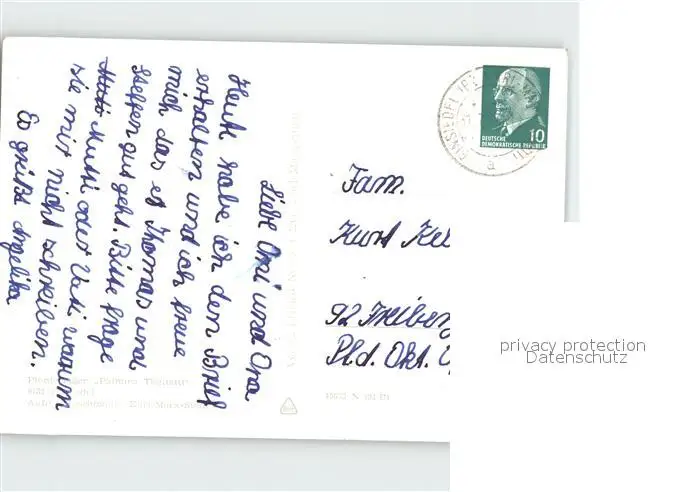 Liebe Omi und Opa
Heute habe ich den Brief
erhalten und ich freue
mich das es Thomas und
Steffen gut geht. Bitte frage
Mutti oder Vati warum
sie mir nicht schreiben.
Es grüßt Angelika
Fam.
Kurt Kel
92 Freiberg
Pld. Okt.
DEUTSCHE
DEMOKRATISCHE REPUBLIK
10
EINSIEDEL
a
Pionierlager „Palmiro Togliatti“
privacy protection
Datenschutz